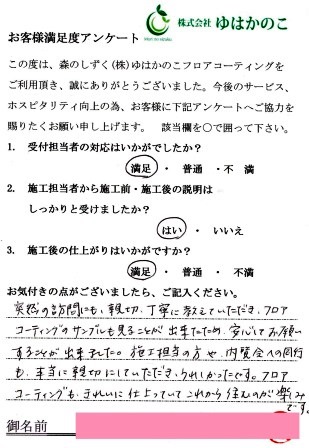 Mori no sizuku
株式会社 ゆはかのこ
お客様満足度アンケート
この度は、森のしずく(株)ゆはかのこフロアコーティングを
ご利用頂き、誠にありがとうございました。今後のサービス、
ホスピタリティ向上の為、お客様に下記アンケートへご協力を
賜りたくお願い申し上げます。 該当欄を○で囲って下さい。
1. 受付担当者の対応はいかがでしたか?
満足 ・ 普通 ・不 満
2. 施工担当者から施工前・施工後の説明は
しっかりと受けましたか?
はい ・ いいえ
3. 施工後の仕上がりはいかがですか?
満足 ・ 普通 ・ 不満
お気付きの点がございましたら、ご記入ください。
突然の訪問にも、親切、丁寧に教えていただき、フロア
コーティングのサンプルも見ることが出来たため、安心してお願い
することが出来ました。施工担当の方や、内覧会への同行
も、本当に親切にしていただき、うれしかったです。フロア
コーティングも、きれいに仕上っていてこれから住むのが楽しみ
です。
御名前